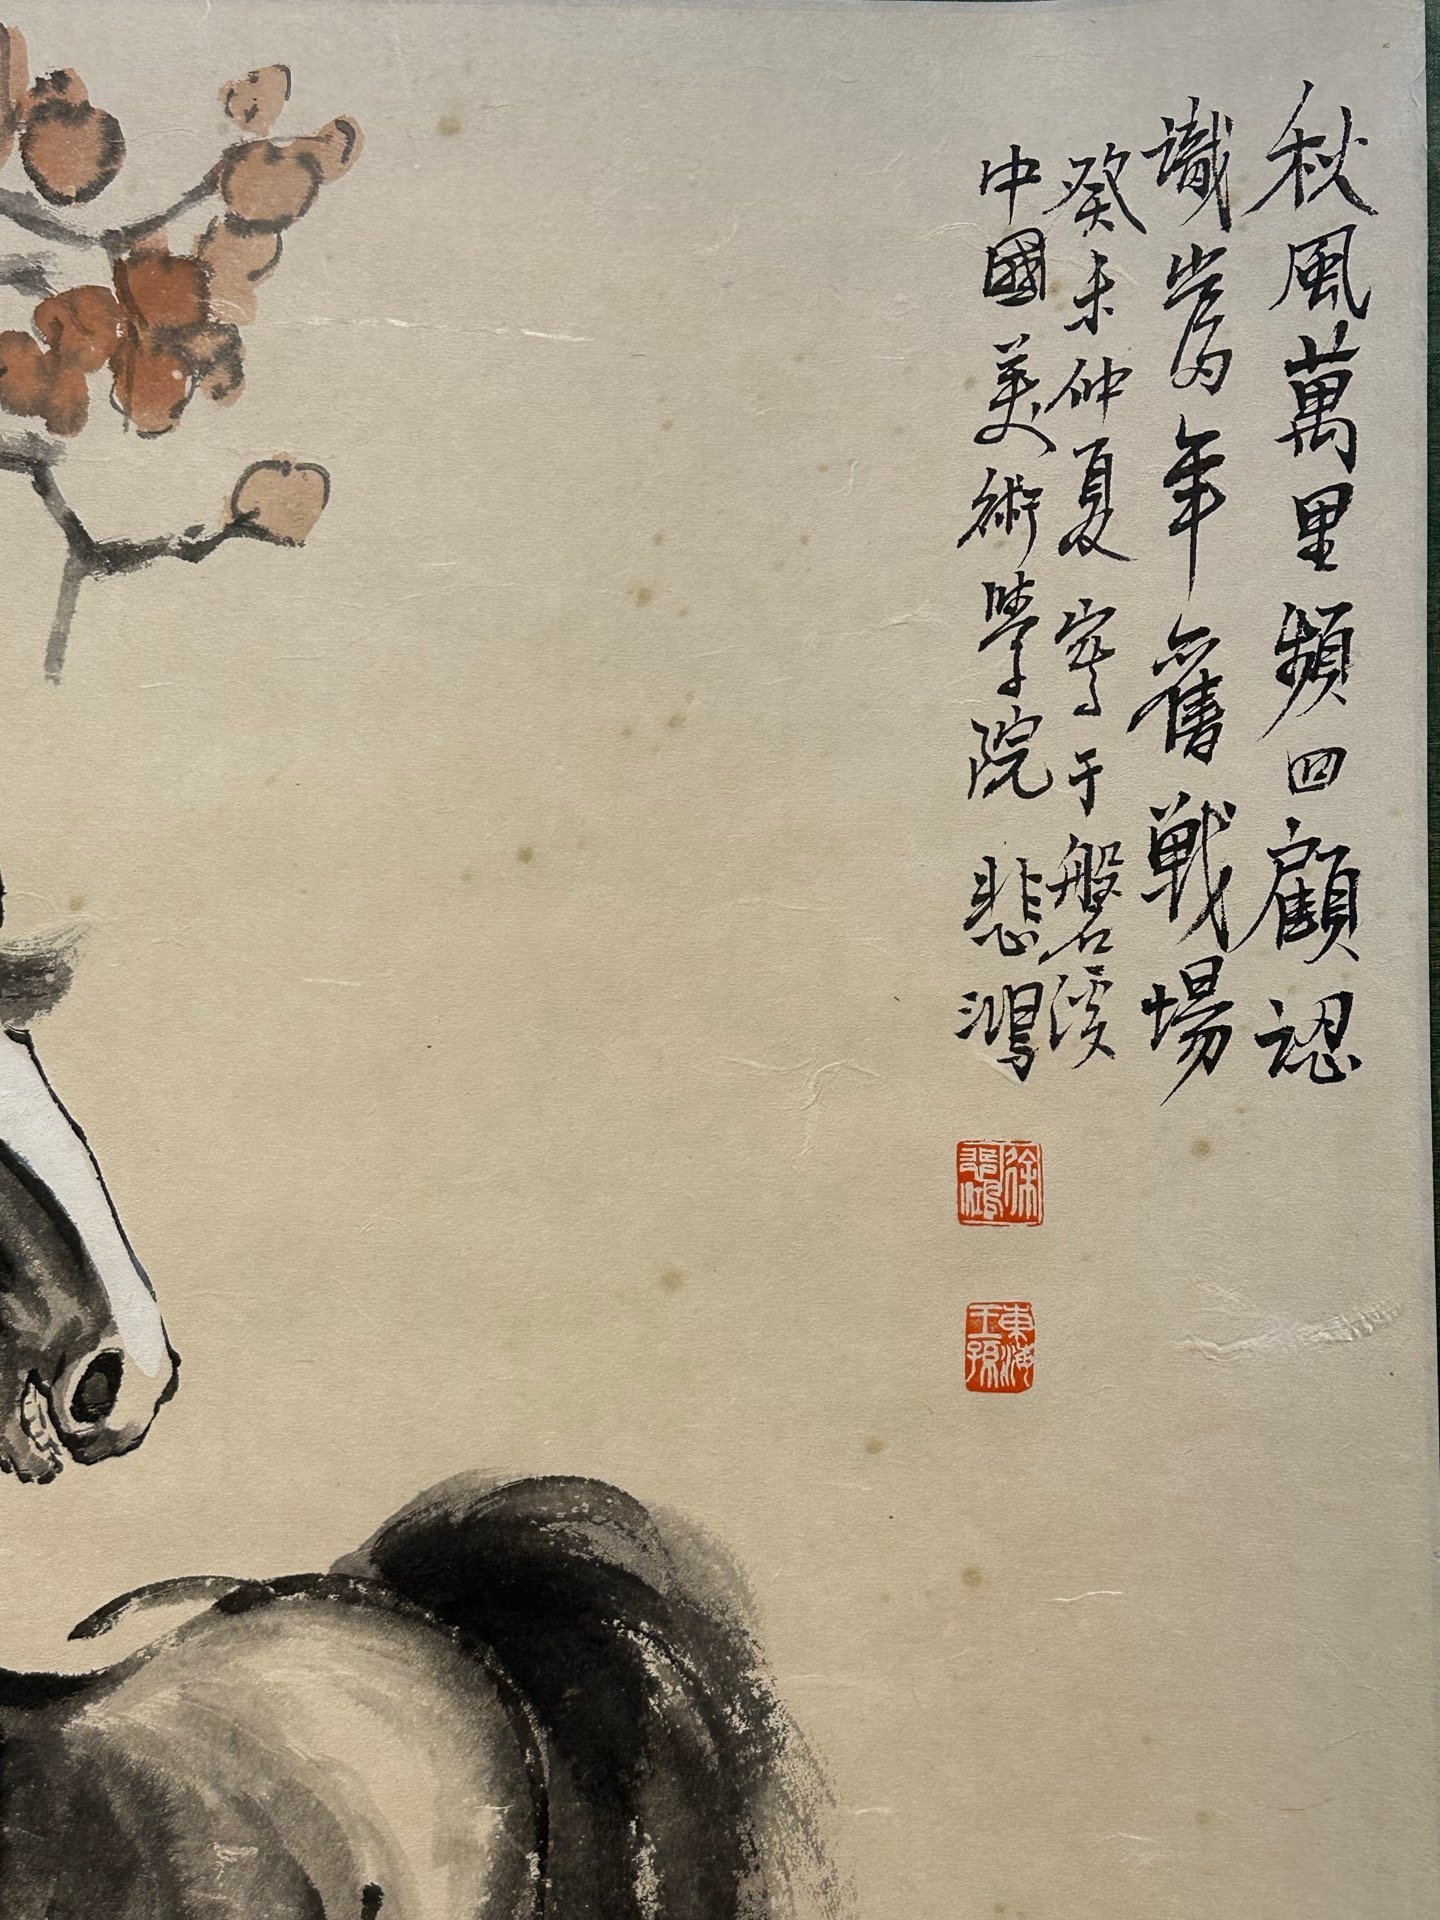 秋風萬里頻回顧認
識當年舊戰場
癸未仲夏寫于磐溪
中國美術學院 悲鴻
徐悲鴻
東海王孫